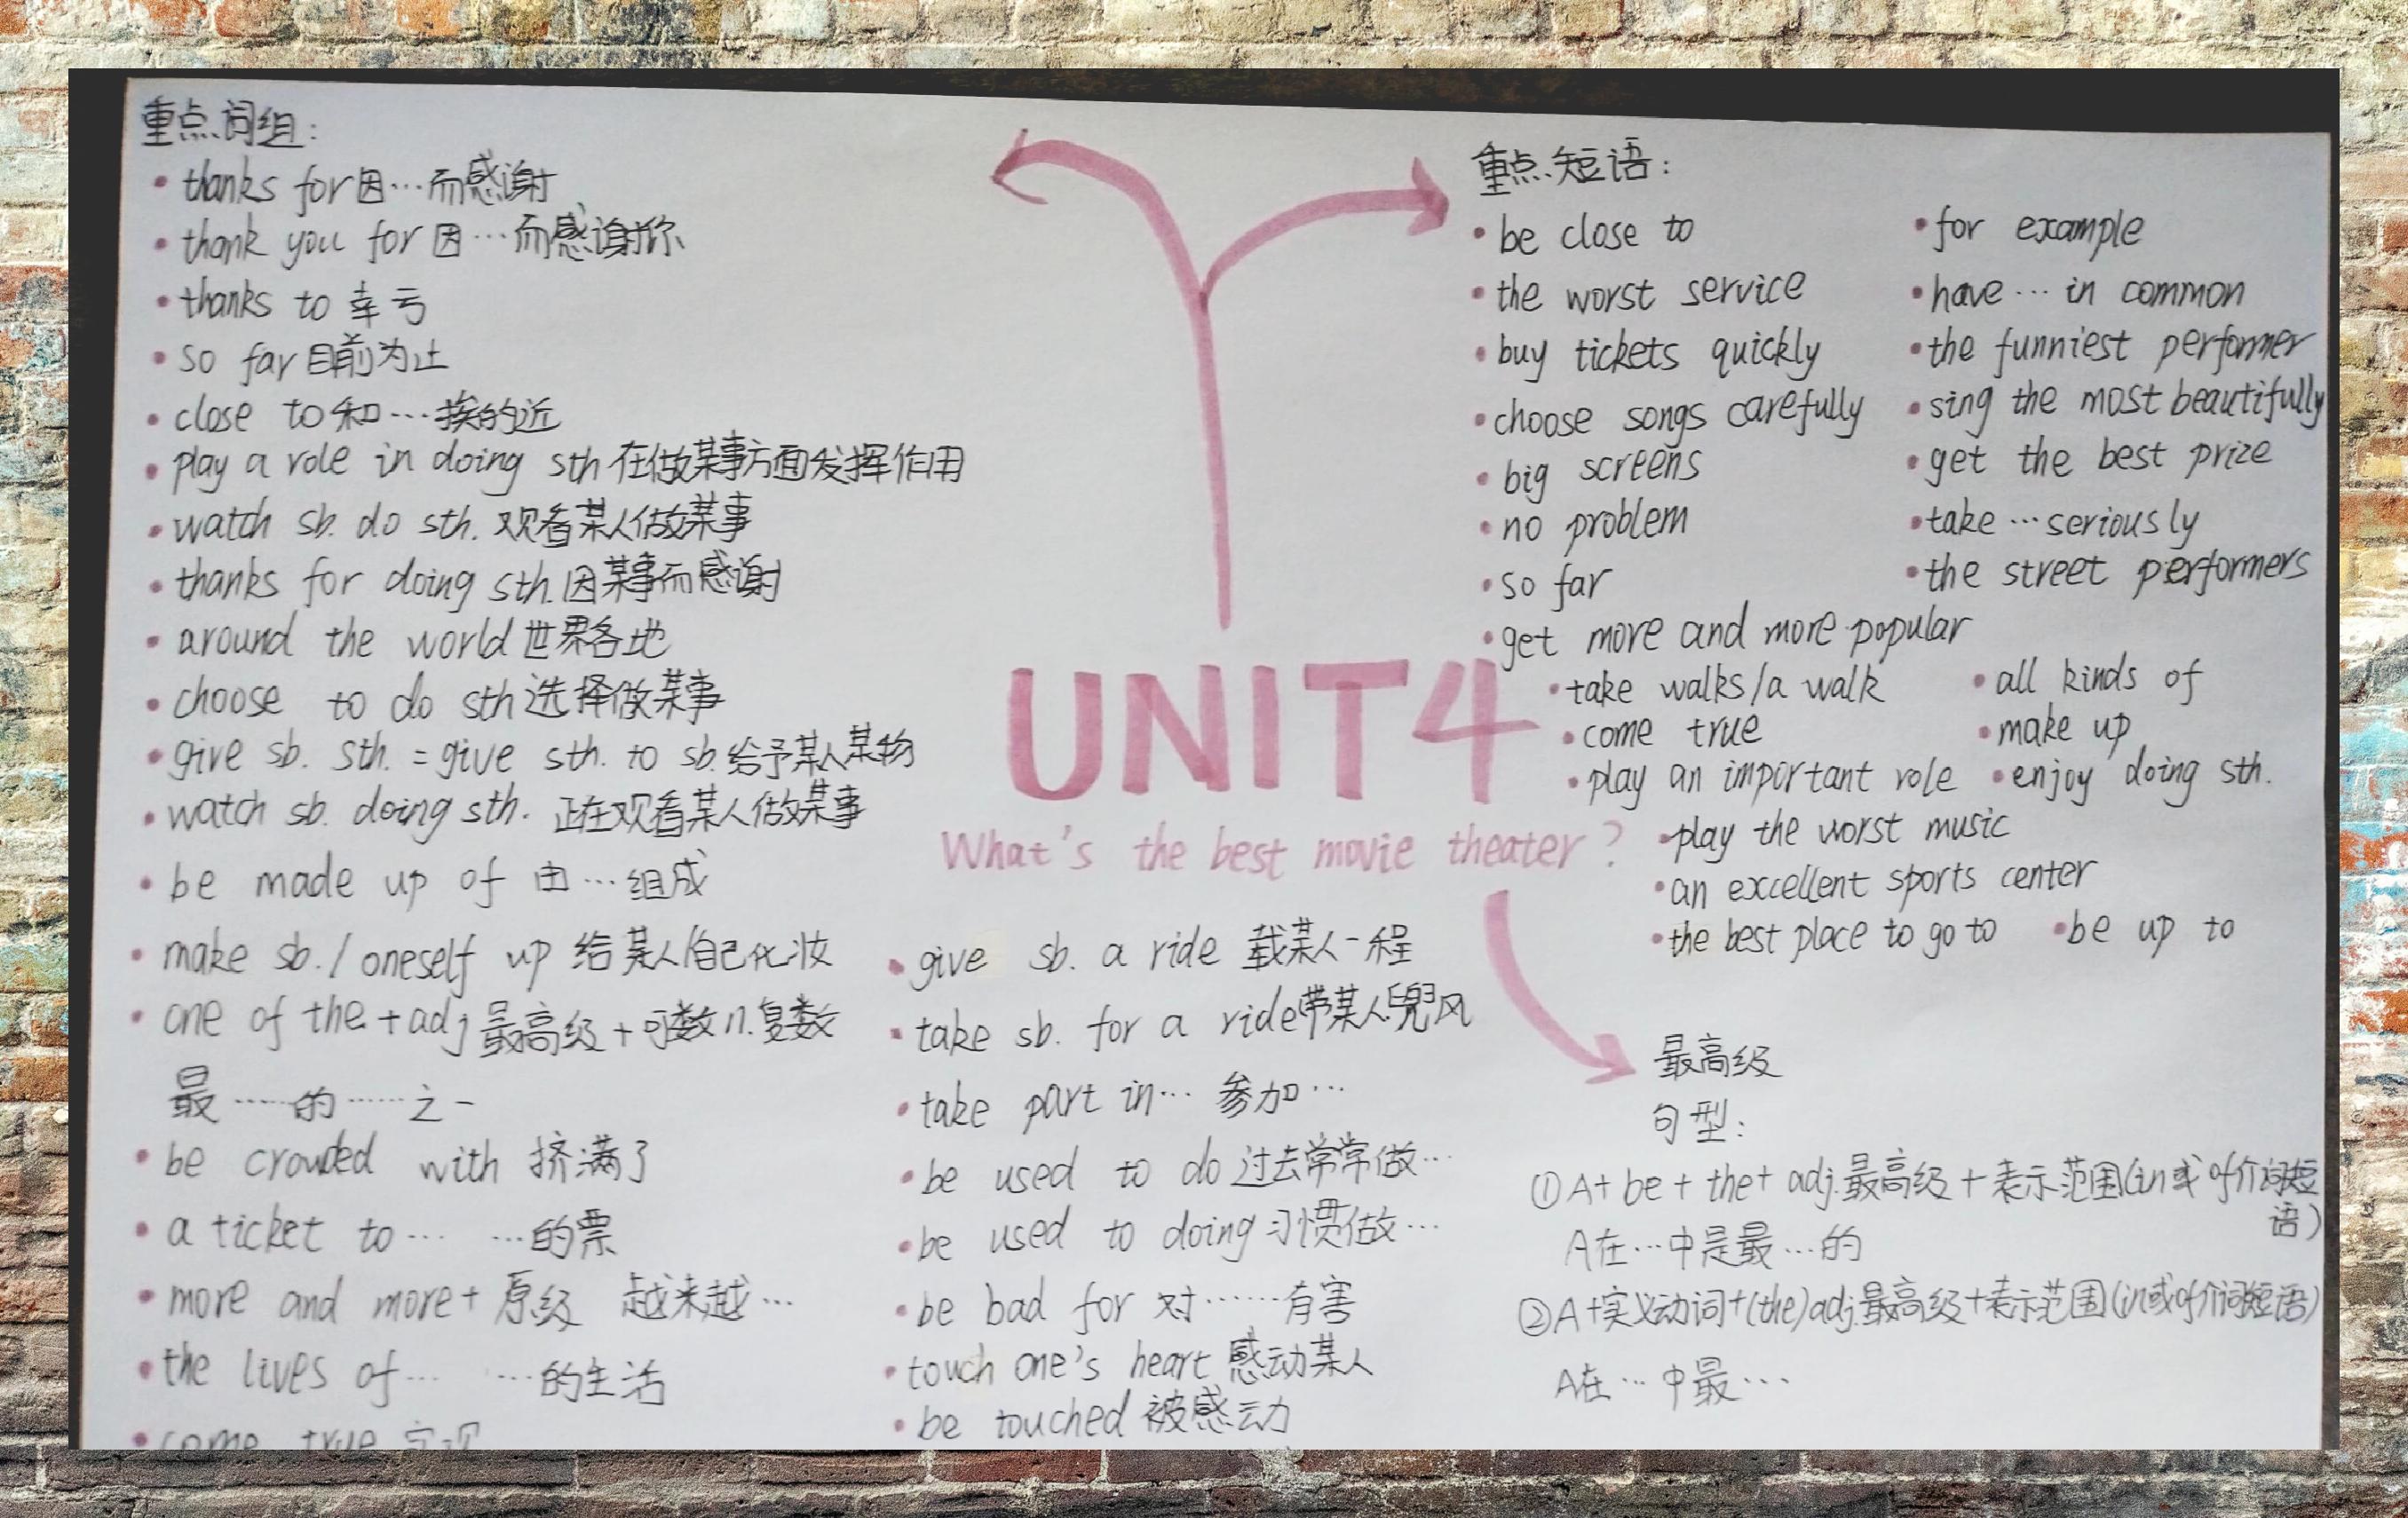 重点词组:
• thanks for 因…而感谢
• thank you for 因…而感谢你
• thanks to 幸亏
• so far 目前为止
• close to 和…挨的近
• play a role in doing sth 在做某事方面发挥作用
• watch sb. do sth. 观看某人做某事
• thanks for doing sth. 因某事而感谢
• around the world 世界各地
• choose to do sth 选择做某事
• give sb. sth. = give sth. to sb. 给予某人某物
• watch sb. doing sth. 正在观看某人做某事
• be made up of 由…组成
• make sb. / oneself up 给某人/自己化妆
• one of the + adj 最高级 + 可数n.复数
最……的……之一
• be crowded with 挤满了
• a ticket to… …的票
• more and more + 原级 越来越…
• the lives of… …的生活
• come true 实现
• give sb. a ride 载某人一程
• take sb. for a ride 带某人兜风
• take part in… 参加…
• be used to do 过去常常做…
• be used to doing 习惯做…
• be bad for 对……有害
• touch one's heart 感动某人
• be touched 被感动
UNIT4
What's the best movie theater?
重点短语:
• be close to
• the worst service
• buy tickets quickly
• choose songs carefully
• big screens
• no problem
• so far
• get more and more popular
• take walks/a walk
• come true
• play an important role
• play the worst music
• an excellent sports center
• the best place to go to
• for example
• have … in common
• the funniest performer
• sing the most beautifully
• get the best prize
• take … seriously
• the street performers
• all kinds of
• make up
• enjoy doing sth.
• be up to
最高级
句型:
① A+ be + the+ adj.最高级 + 表示范围(in或of介词短
语)
A在…中是最…的
② A+实义动词+(the)adj.最高级+表示范围(in或of介词短语)
A在…中最…